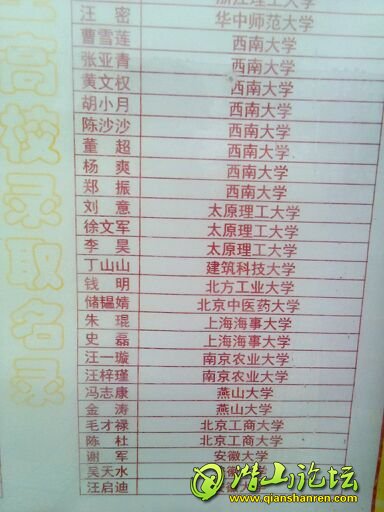 生高校录取名录
浙江理工大学
汪密 华中师范大学
曹雪莲 西南大学
张亚青 西南大学
黄文权 西南大学
胡小月 西南大学
陈沙沙 西南大学
董超 西南大学
杨爽 西南大学
郑振 西南大学
刘意 太原理工大学
徐文军 太原理工大学
李昊 太原理工大学
丁山山 建筑科技大学
钱明 北方工业大学
储韫婧 北京中医药大学
朱琨 上海海事大学
史磊 上海海事大学
汪一璇 南京农业大学
汪梓瑾 南京农业大学
冯志康 燕山大学
金涛 燕山大学
毛才禄 北京工商大学
陈杜 北京工商大学
谢军 安徽大学
吴天水
汪启迪
潜山论坛
www.qianshanren.com